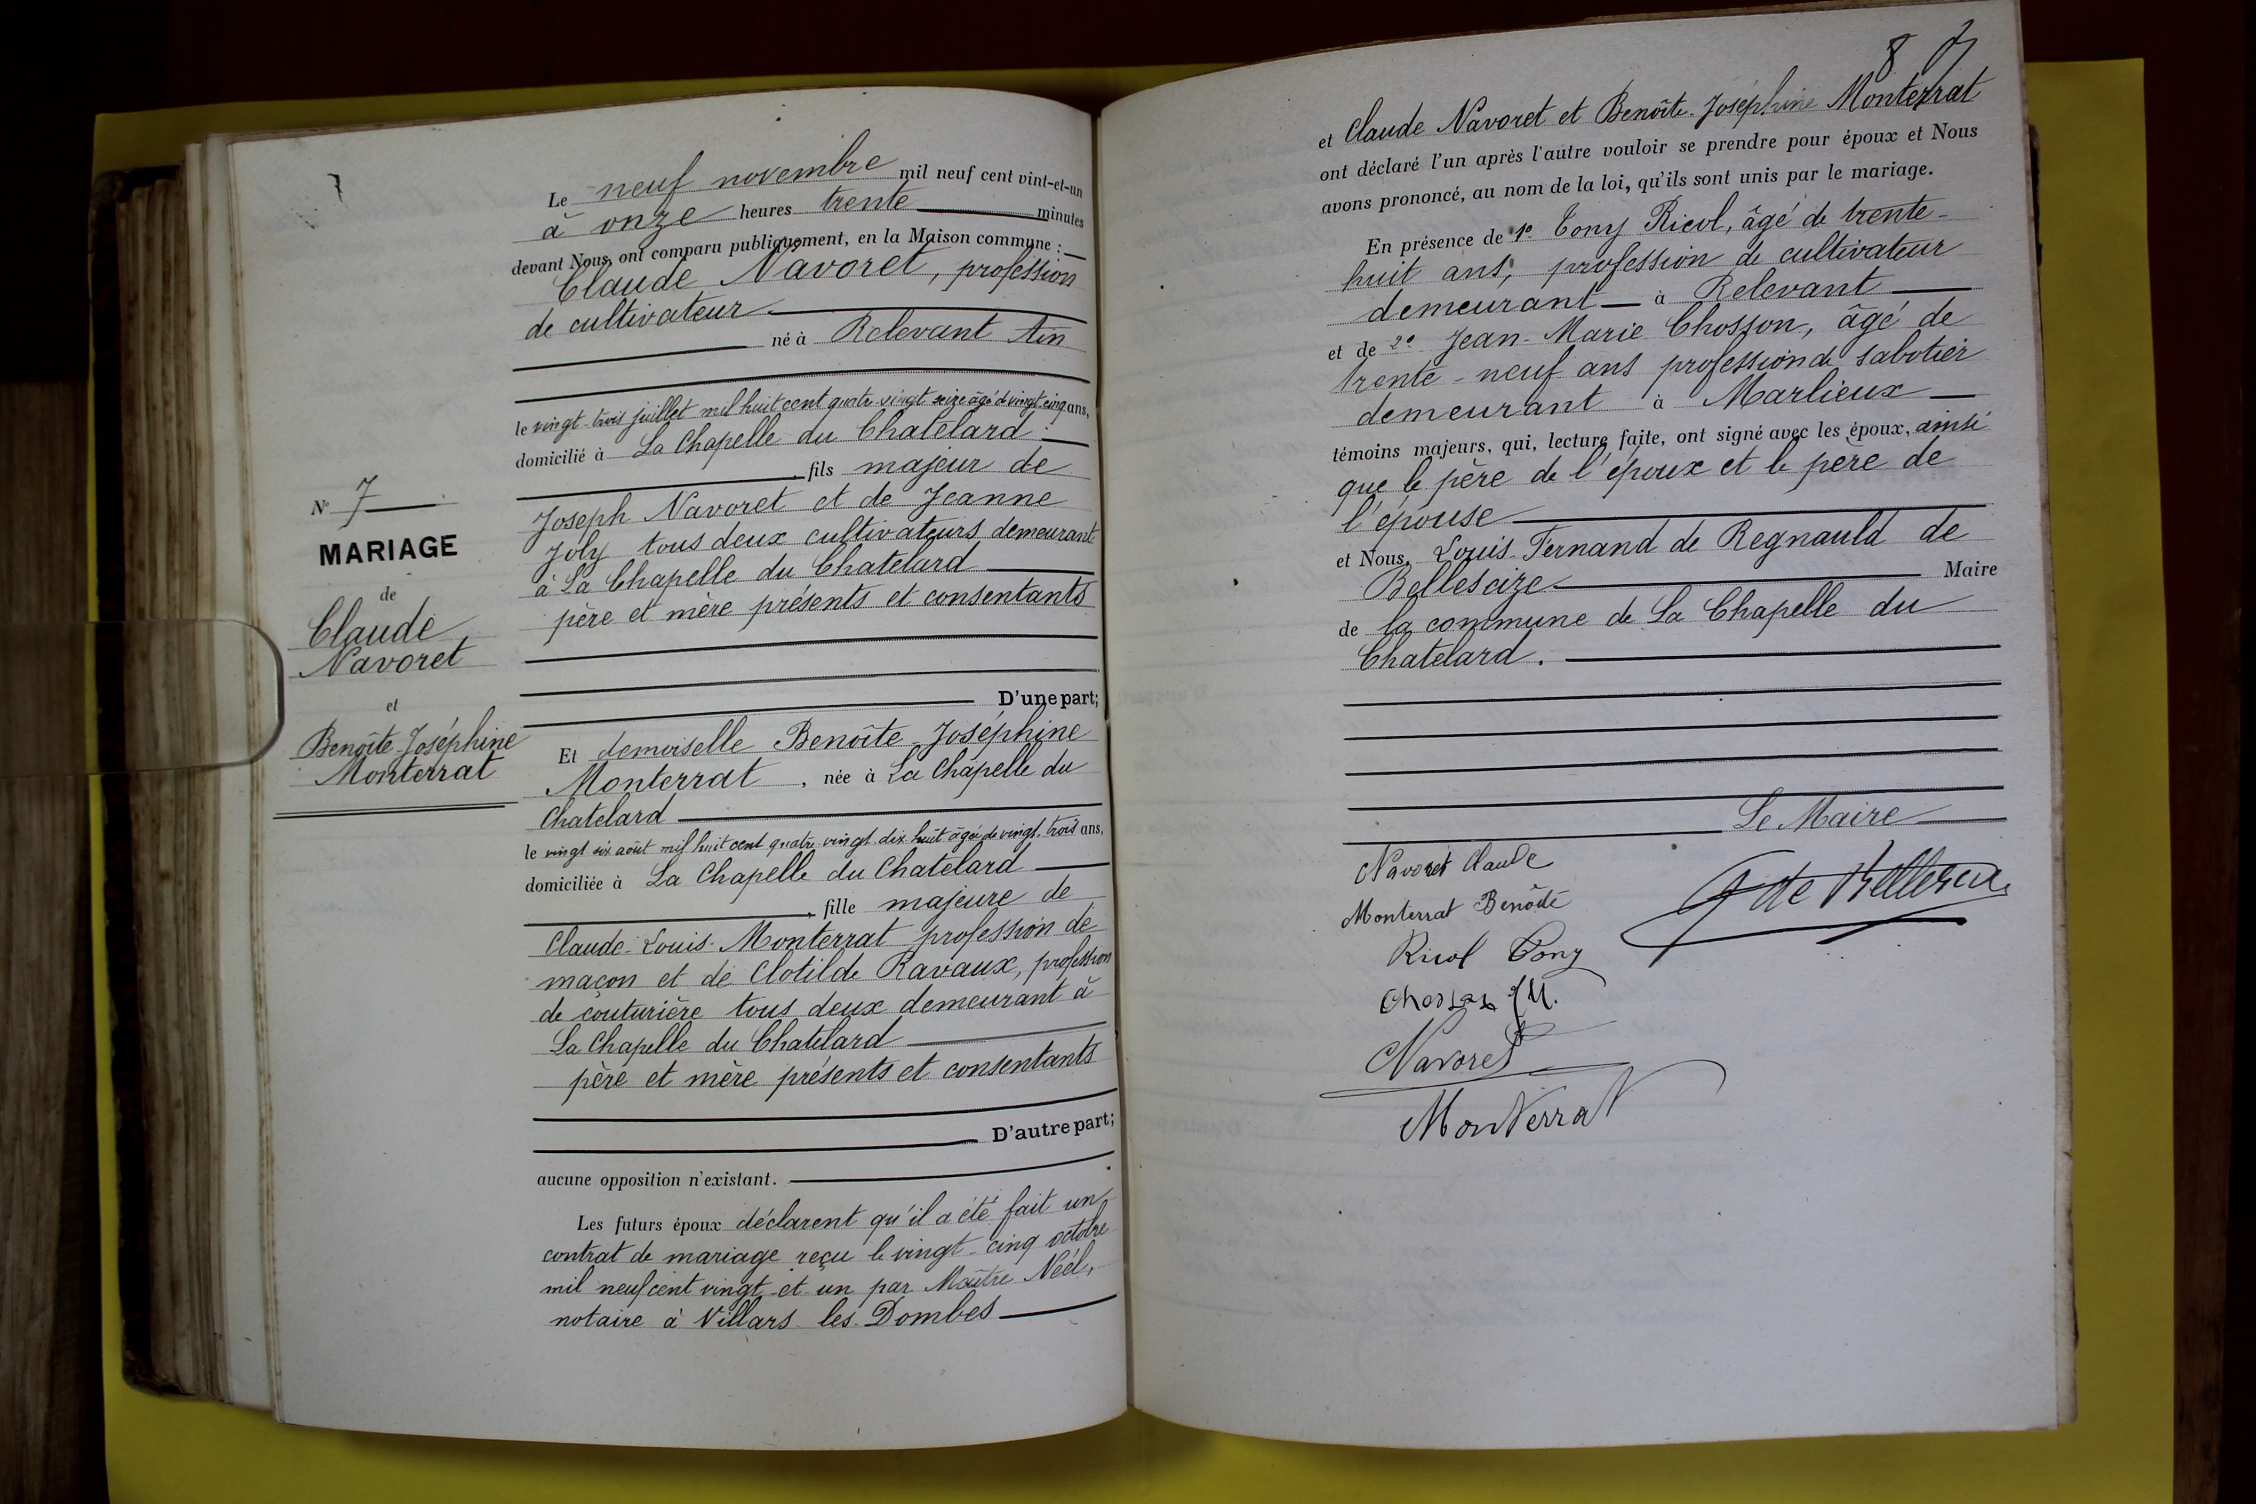 7
Le neuf novembre mil neuf cent vint-et-un
à onze heures trente minutes
devant Nous, ont comparu publiquement, en la Maison commune :
Claude Navoret, profession
de cultivateur
né à Relevant Ain
le vingt-trois juillet mil huit cent quatre vingt seize âgé de vingt-cinq ans,
domicilié à La Chapelle du Chatelard
fils majeur de
Joseph Navoret et de Jeanne
Joly tous deux cultivateurs demeurant
à La Chapelle du Chatelard
père et mère présents et consentants
D'une part;
N° 7
MARIAGE
de
Claude
Navoret
et
Benoîte-Joséphine
Monterrat
Et demoiselle Benoîte-Joséphine
Monterrat, née à La Chapelle du
Chatelard
le vingt six août mil huit cent quatre-vingt dix huit âgée de vingt-trois ans,
domiciliée à La Chapelle du Chatelard
, fille majeure de
Claude-Louis-Monterrat profession de
maçon et de Clotilde Ravaux, profession
de couturière tous deux demeurant à
La Chapelle du Chatelard
père et mère présents et consentants
D'autre part;
aucune opposition n'existant.
Les futurs époux déclarent qu'il a été fait un
contrat de mariage reçu le vingt-cinq octobre
mil neuf cent vingt-et-un par Maître Néel,
notaire à Villars les Dombes
8
et Claude Navoret et Benoîte-Joséphine Monterrat
ont déclaré l'un après l'autre vouloir se prendre pour époux et Nous
avons prononcé, au nom de la loi, qu'ils sont unis par le mariage.
En présence de 1° Tony Ricol, âgé de trente-
huit ans, profession de cultivateur
demeurant à Relevant
et de 2° Jean-Marie Chosson, âgé de
trente-neuf ans profession de sabotier
demeurant à Marlieux
témoins majeurs, qui, lecture faite, ont signé avec les époux, ainsi
que le père de l'époux et le père de
l'épouse
et Nous, Louis-Fernand de Regnauld de
Bellescize Maire
de la commune de La Chapelle du
Chatelard.
Le Maire
Navoret Claude
Monterrat Benoîte
Ricol Tony
Chosson JM.
Navoret
Monterrat